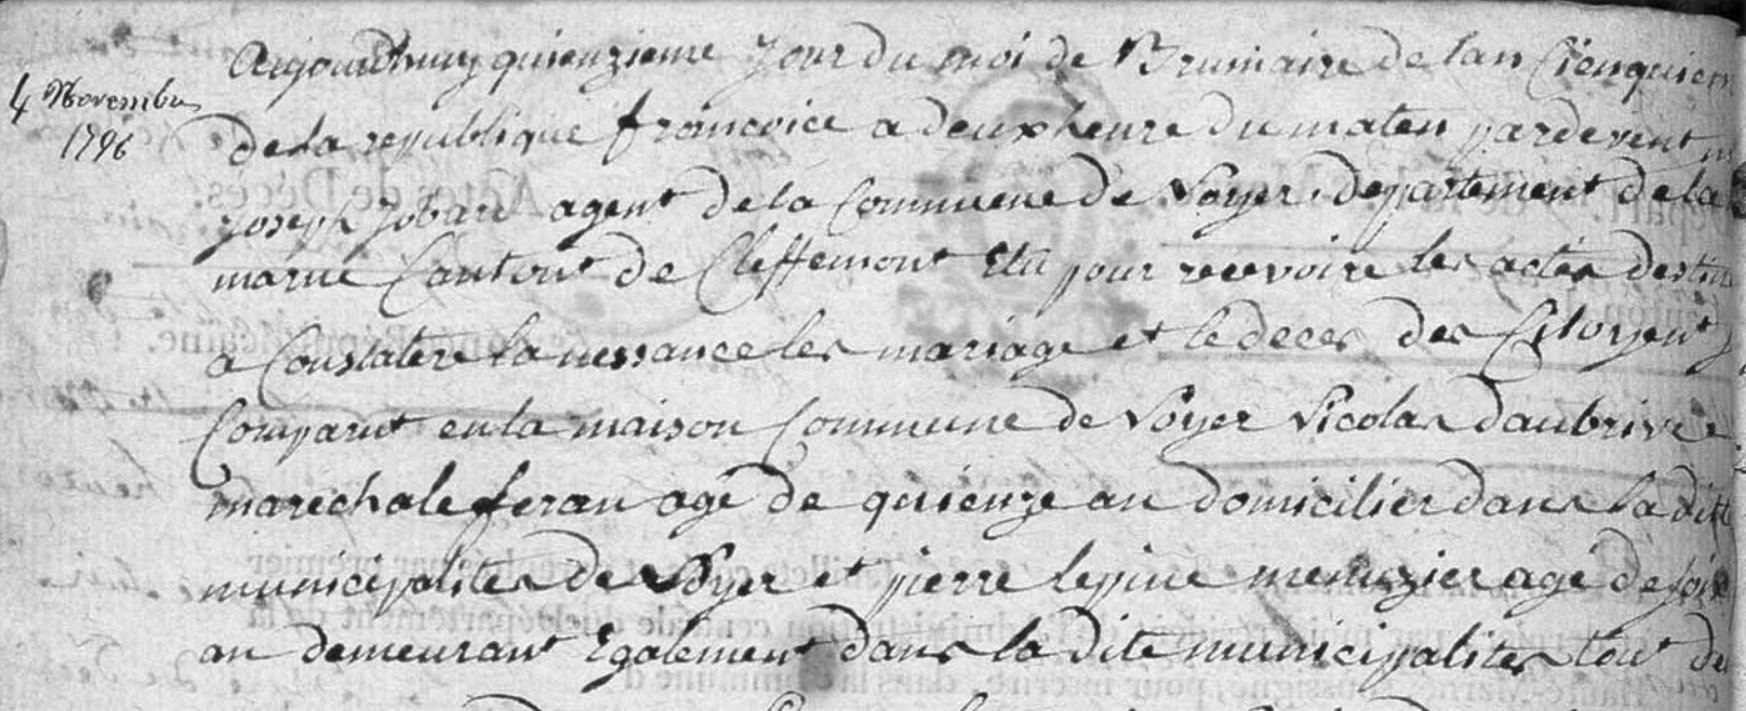 4 Novembre
1796
Aujourdhuy quienzieme Jour du moi de Brumaire de lan Cienquiem
de la republique francoice a deux heure du maten pardevent
joseph Jobard agent de la Commuene de Noyer departement de la
marne Cantont de Cleffemont Elu pour recevoire les actes destin
a Constatere la nessance les mariage et le deces des Citoyent
Comparut en la maison Commune de Noyer Nicolas daubrive
marechale feran agé de quienze an domicilier dans la dite
municipaliter de Noyer et pierre lepine menuzier agé de soix
an demeurant Egalement dans la dite municipaliter tout de